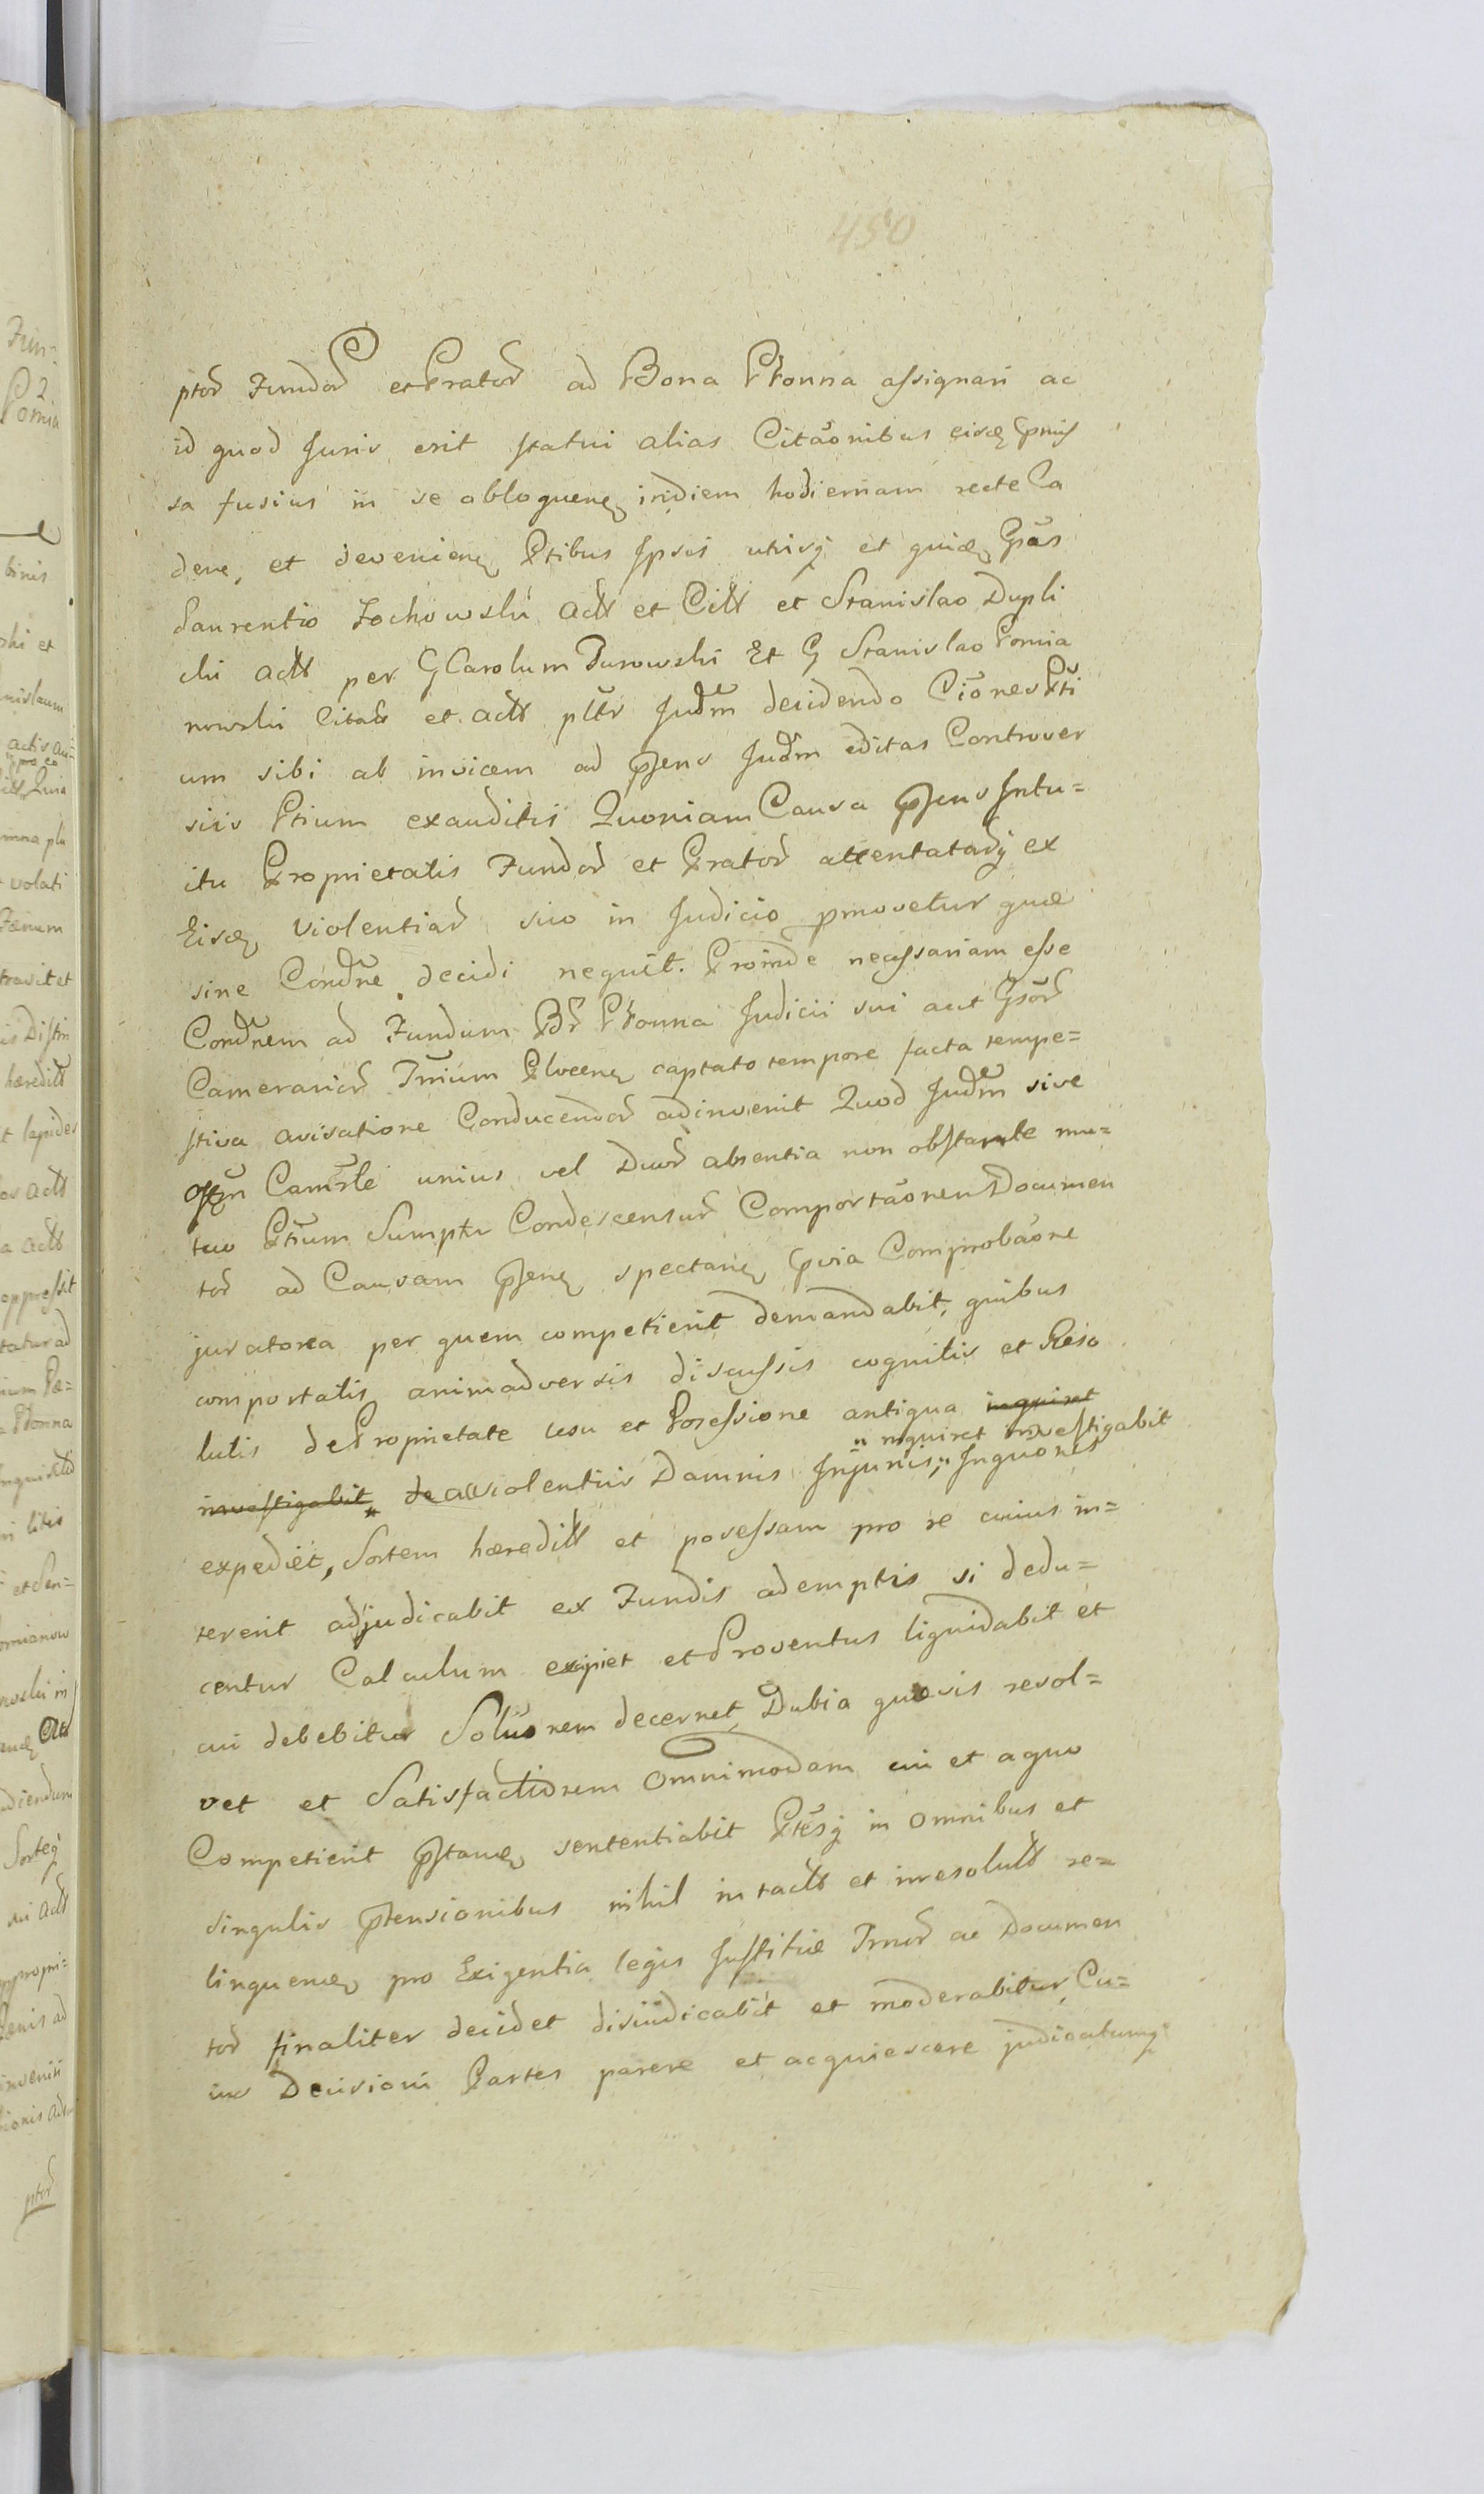 450
ptor Fundor et Prator ad Bona Płonna assignari ac
id quod Juris erit statui alias Citaonibus eisdē pmiss
sa fusius in se obloquenē in diem hodiernam recte Ca
dere, et devenienē Ptibus Ipsis utrisq et quidē Gsis
Laurentio Zochowski Actt et Citt et Stanislao Dupli
cki Actt per G Carolum Turowski Et G Stanislao Pomia
nowski Citatt et Actt pltr Judm decidendo Ciones Pti
um sibi ab invicem ad psens Judm editas Controver
siis Ptium exauditis Quoniam Causa psens Intu=
itu Proprietatis Fundor et Prator attentatarq ex
Eisdē violentiar suo in Judicio pmovetur quæ
sine Condne decidi nequit. Proinde necessariam esse
Condnem ad Fundum Br Płonna Judicii sui aut Gsor
Camerarior Trium Plocenē captato tempore facta tempe=
stiva avisatione Conducendor adinvenit Quod Judm sive
Offm Camrle unius vel Duor absentia non obstante mu=
tuo Ptium Sumptu Condescensur Comportaonem Documen
tor ad Causam psenē spectanē pvia Comprobaone
juratorea per quem competierit demandabit, quibus
comportatis animadversis discussis cognitis et Reso
lutis de Proprietate usu et Posessione antiqua inquiret
" inquiret investigabit
investigabit * de ac violentiis Damnis Injuriis," Inquones
expediet, Sortem hæreditt et posessam pro re cuius in=
tererit adjudicabit ex Fundis ademptis si dedu=
centur Calculum excipiet et Proventus liquidabit et
cui debebitur Soluonem decernet, Dubia quævis resol=
vet et Satisfactionem omnimodam cui et a quo
Competierit pstanē sententiabit Ptesq in omnibus et
singulis ptensionibus nihil intactt et irresolutt re=
linquenē pro Exigentia legis Justitiæ Trnor ac Documen
tor finaliter decidet dijudicabit et moderabitur, Cu=
ius Decisioni Partes parere et acquiescere judicatumq